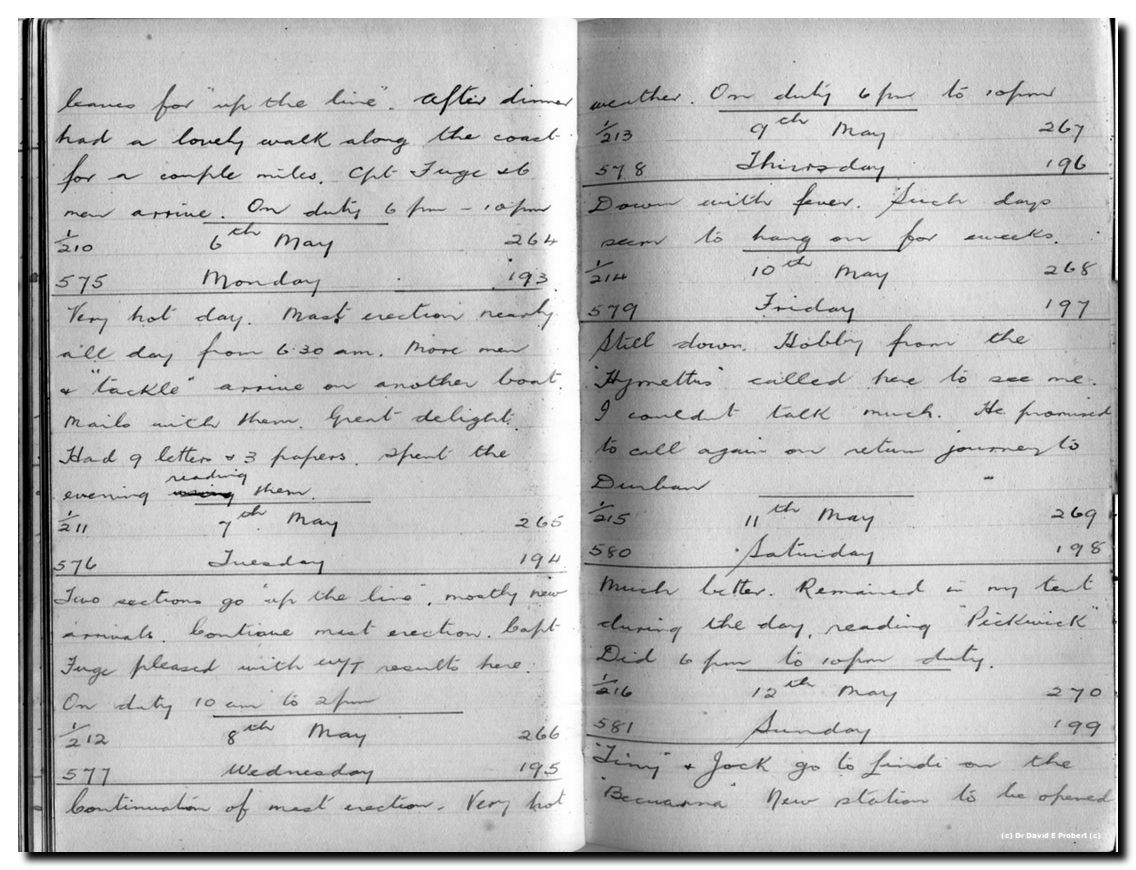 leaves for "up the line". After dinner
had a lovely walk along the coast
for a couple miles. Cpt Fuge & 6
men arrive. On duty 6 pm - 10 pm
1/210 6th May 264
575 Monday 193
Very hot day. Mast erection nearly
all day from 6.30 am. More men
& "tackle" arrive on another boat.
Mails with them. Great delight.
Had 9 letters & 3 papers. Spent the
reading
evening them.
1/211 7th May 265
576 Tuesday 194
Two sections go "up the line", mostly new
arrivals. Continue mast erection. Capt
Fuge pleased with W/T results here.
On duty 10 am to 2 pm
1/212 8th May 266
577 Wednesday 195
Continuation of mast erection. Very hot
weather. On duty 6 pm to 10 pm
1/213 9th May 267
578 Thursday 196
Down with fever. Such days
seem to hang on for weeks.
1/214 10th May 268
579 Friday 197
Still down. Hobby from the
"Hymettus" called here to see me.
I couldn't talk much. He promised
to call again on return journey to
Durban
1/215 11th May 269
580 Saturday 198
Much better. Remained in my tent
during the day, reading "Pickwick"
Did 6 pm to 10 pm duty.
1/216 12th May 270
581 Sunday 199
"Tiny" & Jock go to Lindi on the
"Becuanna" New station to be opened
(c) Dr David E Probert (c)